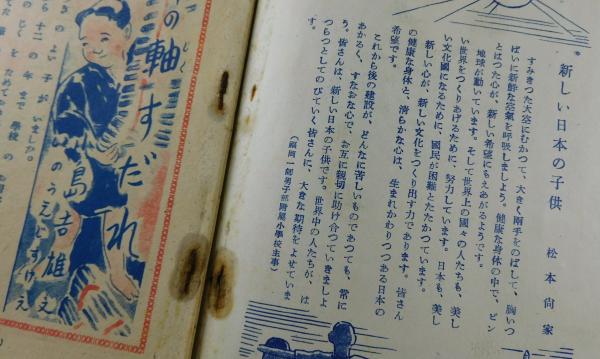 新しい日本の子供
松本尚家
すみきつた大空にむかつて、大きく兩手をのばして、胸いつ
ぱいに新鮮な空氣を呼吸しましよう。健康な身体の中で、ピン
とはつた心が、新しい希望にもえあがるようです。
地球が動いています。そして世界上の國々の人たちも、美し
い世界をつくりあげるために、努力しています。日本も、美し
い文化國になるために、國民が困難とたたかつています。
新しい心が、新しい文化をつくり出す力であります。皆さん
の健康な身体と、清らかな心は、生まれかわりつつある日本の
希望です。
これから後の建設が、どんなに苦しいものであつても、常に
あかるく、すなおな心で、お互に親切に助け合つていきましよ
う。皆さんは、新しい日本の子供です。世界中の人たちが、は
つらつとしてのびていく皆さんに、大きな期待をよせていま
す。
(福岡一師男子部附属小學校主事)
の軸すだれ
じく
島吉雄
え
いのうえとすけ
え
よい子がいました。
十二の年まで學校の